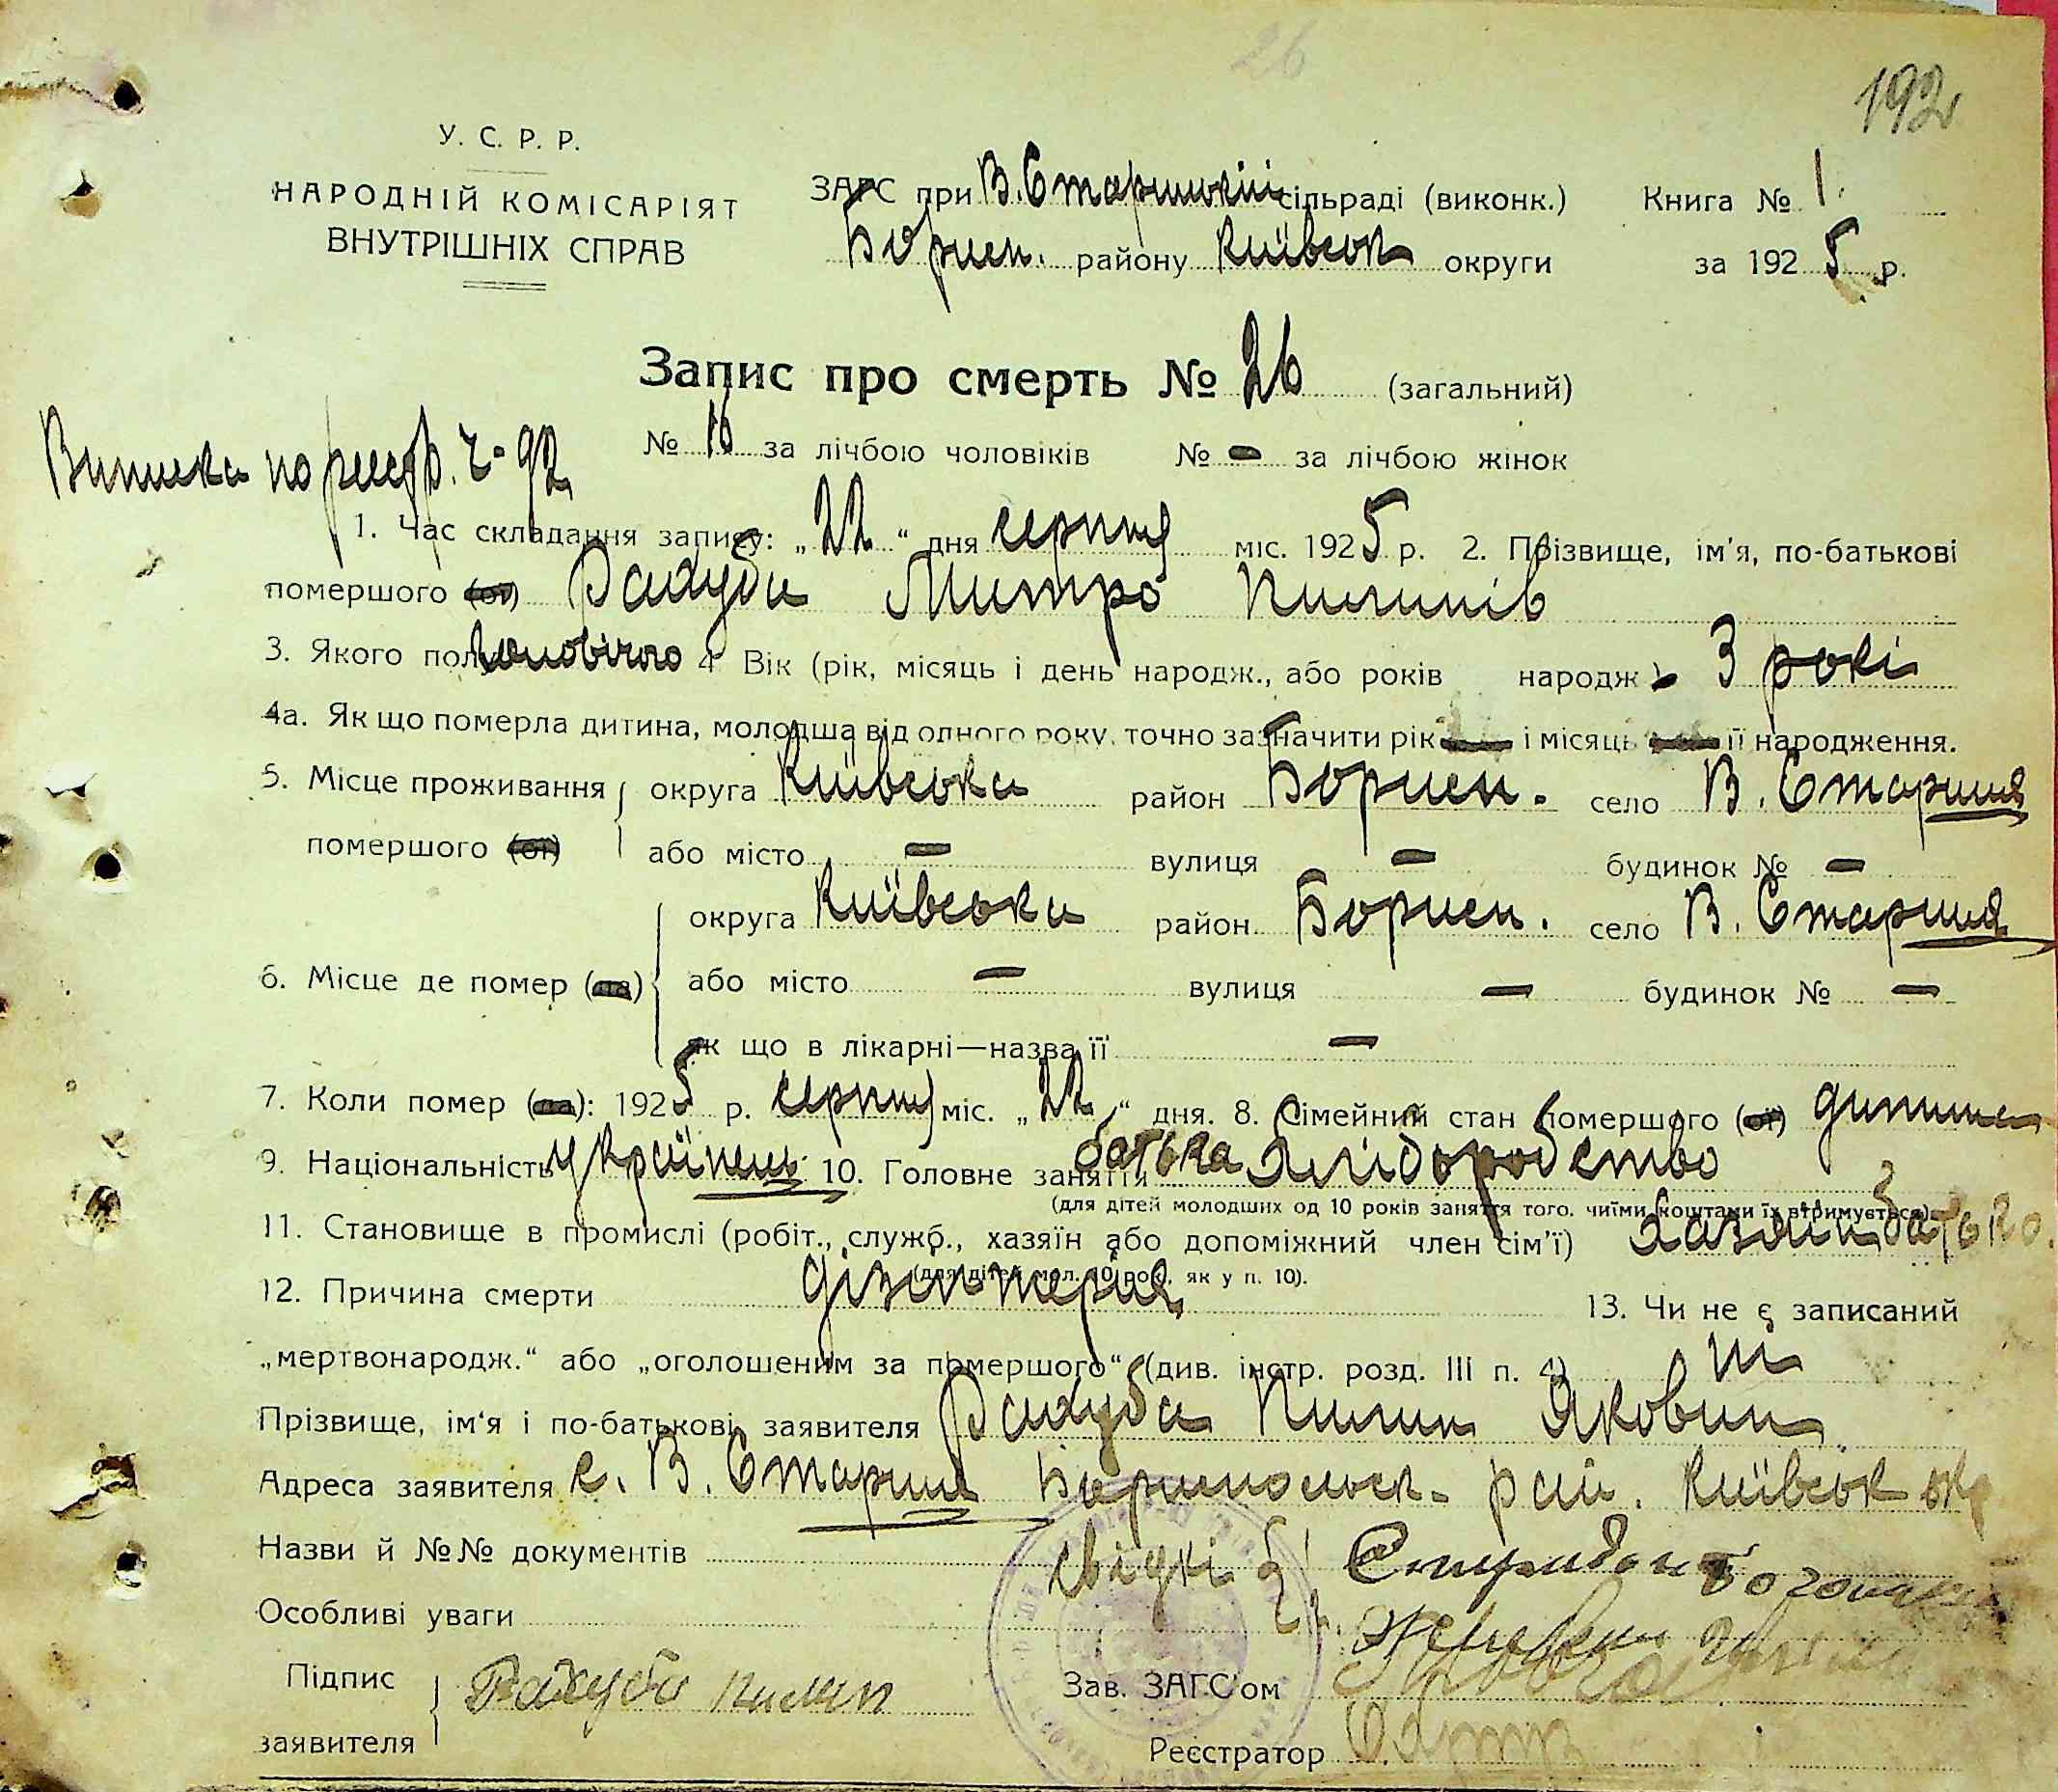 26
192
У. С. Р. Р.
НАРОДНІЙ КОМІСАРІЯТ
ВНУТРІШНІХ СПРАВ
ЗАГС при В. Старицькій сільраді (виконк.) Книга № 1.
Борисп. району Київськ округи за 1925 р.
Запис про смерть № 26 (загальний)
Виписка по реєстр. 92
№ 16 за лічбою чоловіків № — за лічбою жінок
1. Час складання запису: „22“ дня серпня міс. 1925 р. 2. Прізвище, ім'я, по-батькові
помершого (ої) Рахуба Митро Пилипів
3. Якого полу чоловічого 4. Вік (рік, місяць і день народж., або років народж.) 3 рокі
4а. Як що померла дитина, молодша від одного року, точно зазначити рік — і місяць — її народження.
5. Місце проживання округа Київська район Борисп. село В. Стариця
помершого (ої) або місто — вулиця — будинок № —
округа Київська район Борисп. село В. Стариця
6. Місце де помер (ла) або місто — вулиця — будинок № —
як що в лікарні—назва її —
7. Коли помер (ла): 1925 р. серпня міс. „22“ дня. 8. Сімейний стан помершого (ої) дитина
9. Національність українець 10. Головне заняття батька хлібороб ство
(для дітей молодших од 10 років заняття того, чиїми коштами їх втримується)
11. Становище в промислі (робіт., служб., хазяїн або допоміжний член сім'ї) хазяїн батько.
(для дітей мол. 10 рок. як у п. 10).
12. Причина смерти дізентерія 13. Чи не є записаний
„мертвонародж.“ або „оголошеним за помершого“ (див. інстр. розд. III п. 4) ні
Прізвище, ім'я і по-батькові заявителя Рахуба Пилип Якович
Адреса заявителя с. В. Стариця Бориспольск. рай. Київськ окр
Назви й №№ документів свідкі Спиридон
Особливі уваги
Підпис Рахуба Пилип Зав. ЗАГС'ом
заявителя Реєстратор